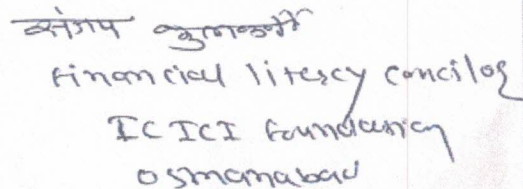 संजय कुलकर्णी
Financial literscy concilor
ICICI foundation
osmanabad